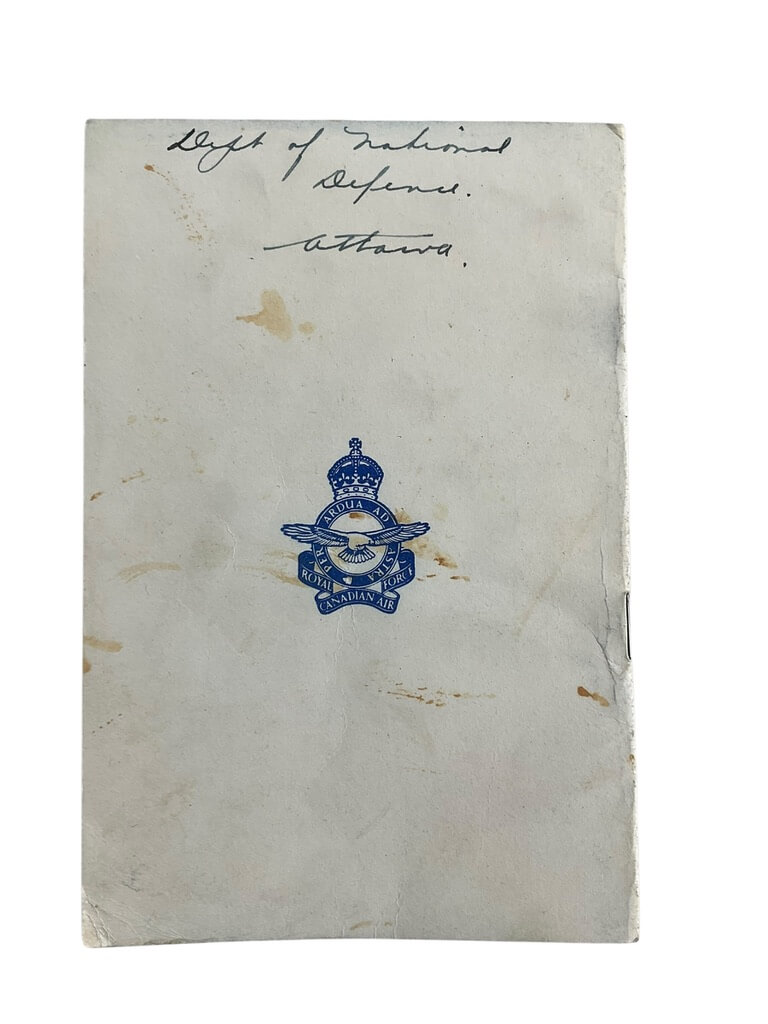 Dept of National
Defence.
Ottawa.
PER ARDUA AD ASTRA
ROYAL CANADIAN AIR FORCE